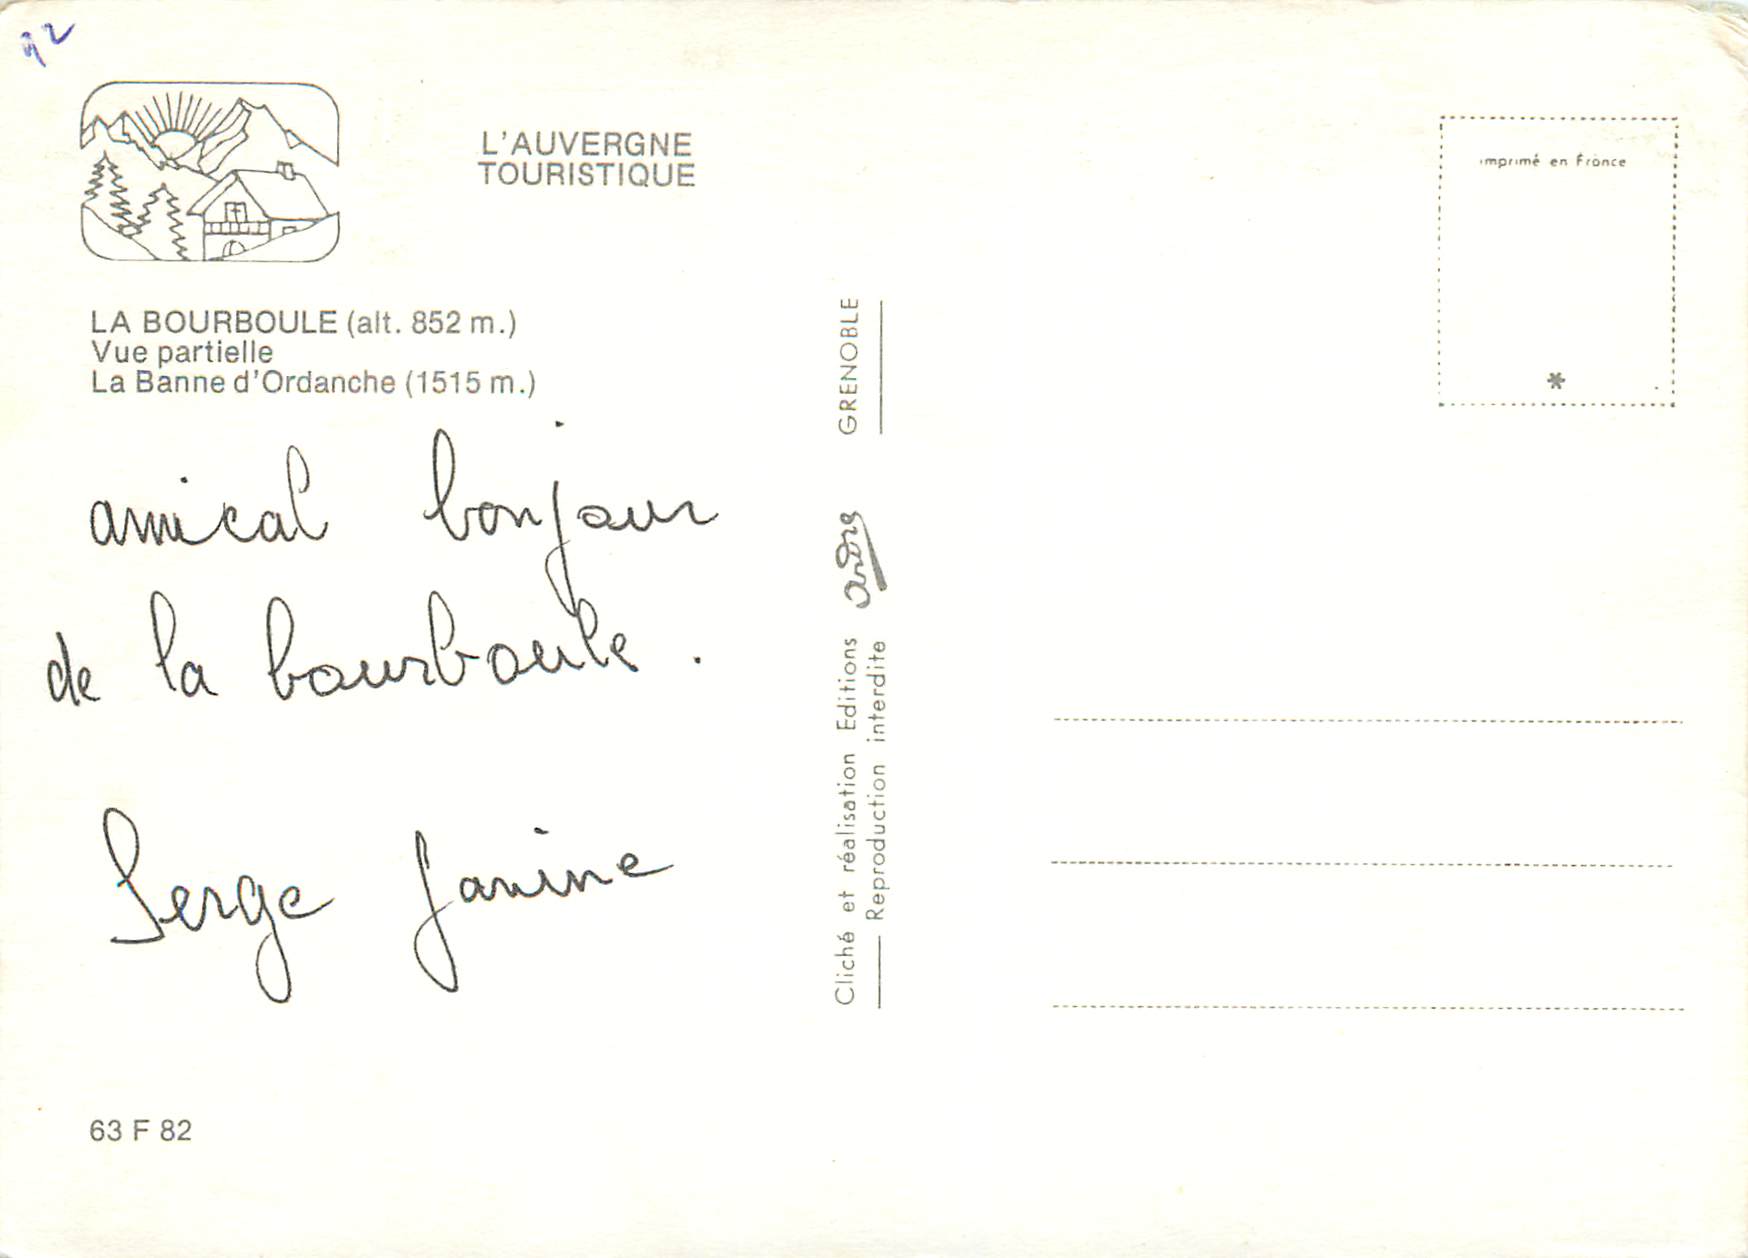 92
L'AUVERGNE
TOURISTIQUE
imprimé en France
LA BOURBOULE (alt. 852 m.)
Vue partielle
La Banne d'Ordanche (1515 m.)
amical bonjour
de la bourboule.
Serge Janine
63 F 82
Cliché et réalisation Editions André GRENOBLE
Reproduction interdite
*